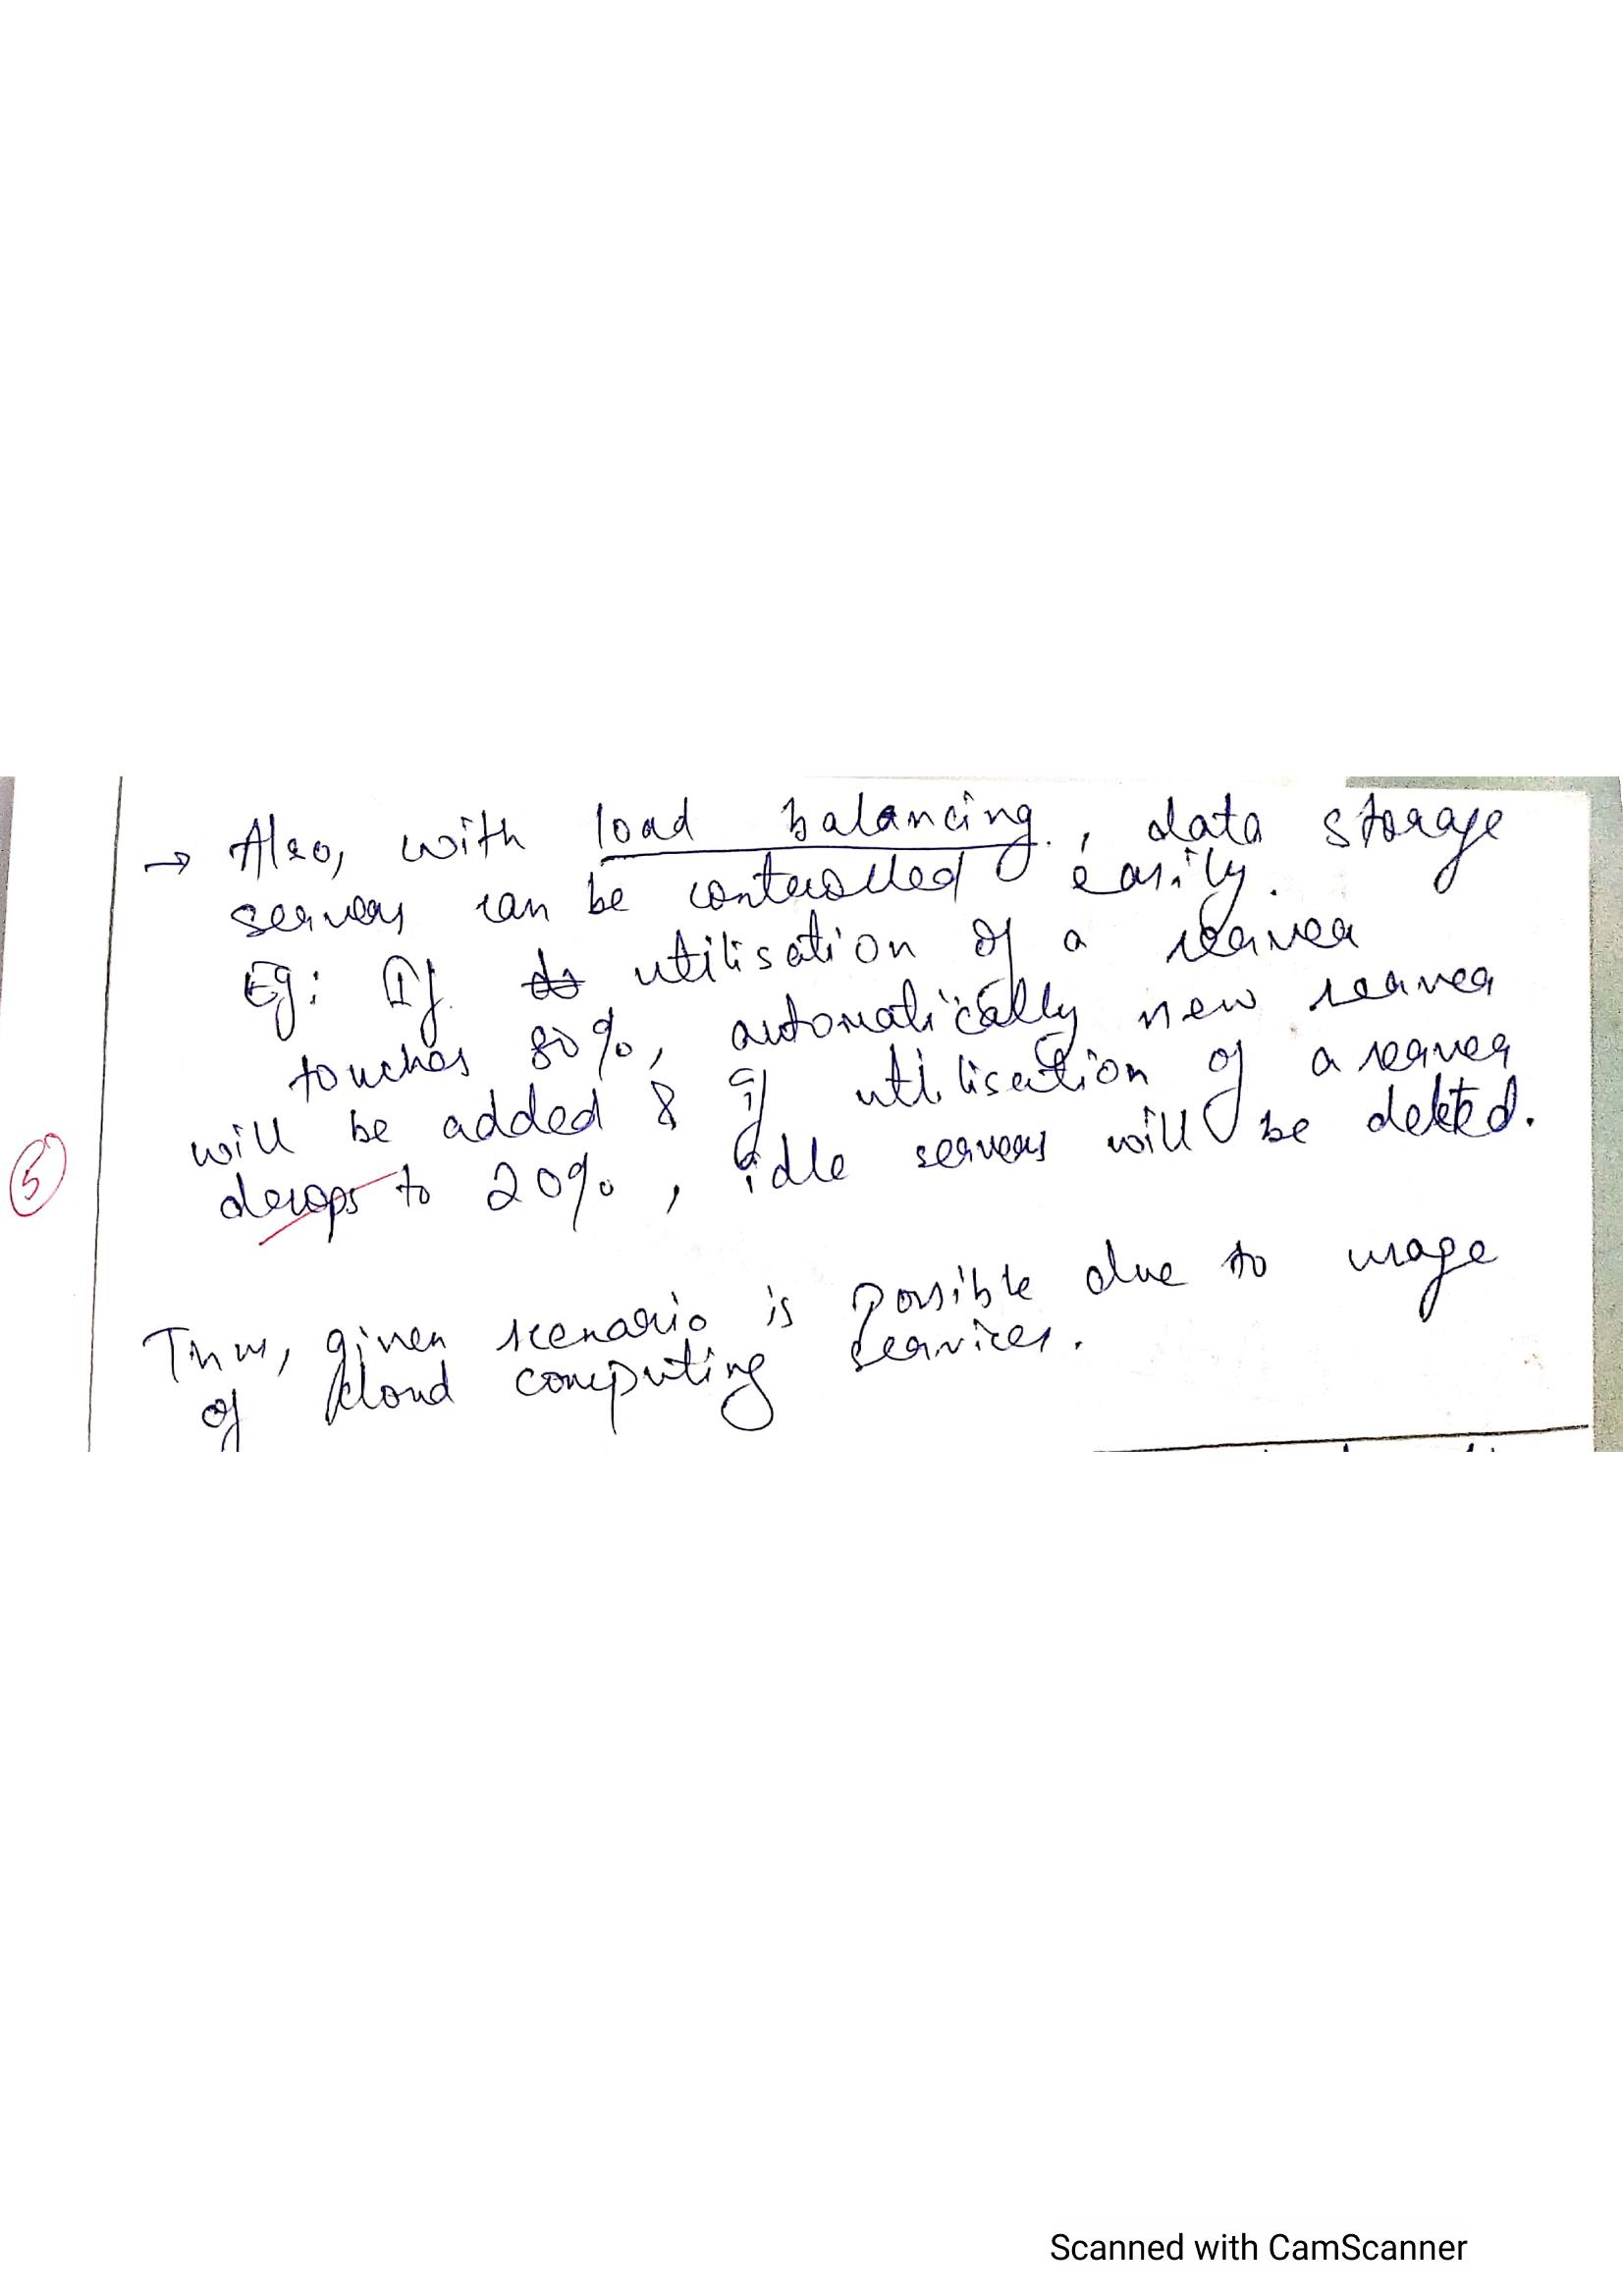 → Also, with load balancing, data storage
servers can be controlled easily.
Eg: If utilisation of a server
touches 80%, automatically new server
will be added & if utilisation of a server
drops to 20%, idle servers will be deleted.
5
Thus, given scenario is possible due to usage
of cloud computing services.
Scanned with CamScanner